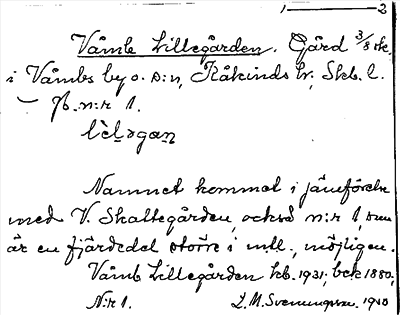 1 — 2
Våmb Lillegården. Gård 3/8 mtl.
i Våmbs by o. s:n, Kåkinds hd, Skb. l.
— Jb. n:r 1.
lìlǝgan
Namnet kommet i jämförelse
med V. Skattegården, också n:r 1, som
är en fjärdedel större i mtl., möjligen.
Våmb Lillegården kb. 1931, bek 1880,
N:r 1. L.M. Svenungsson. 1910